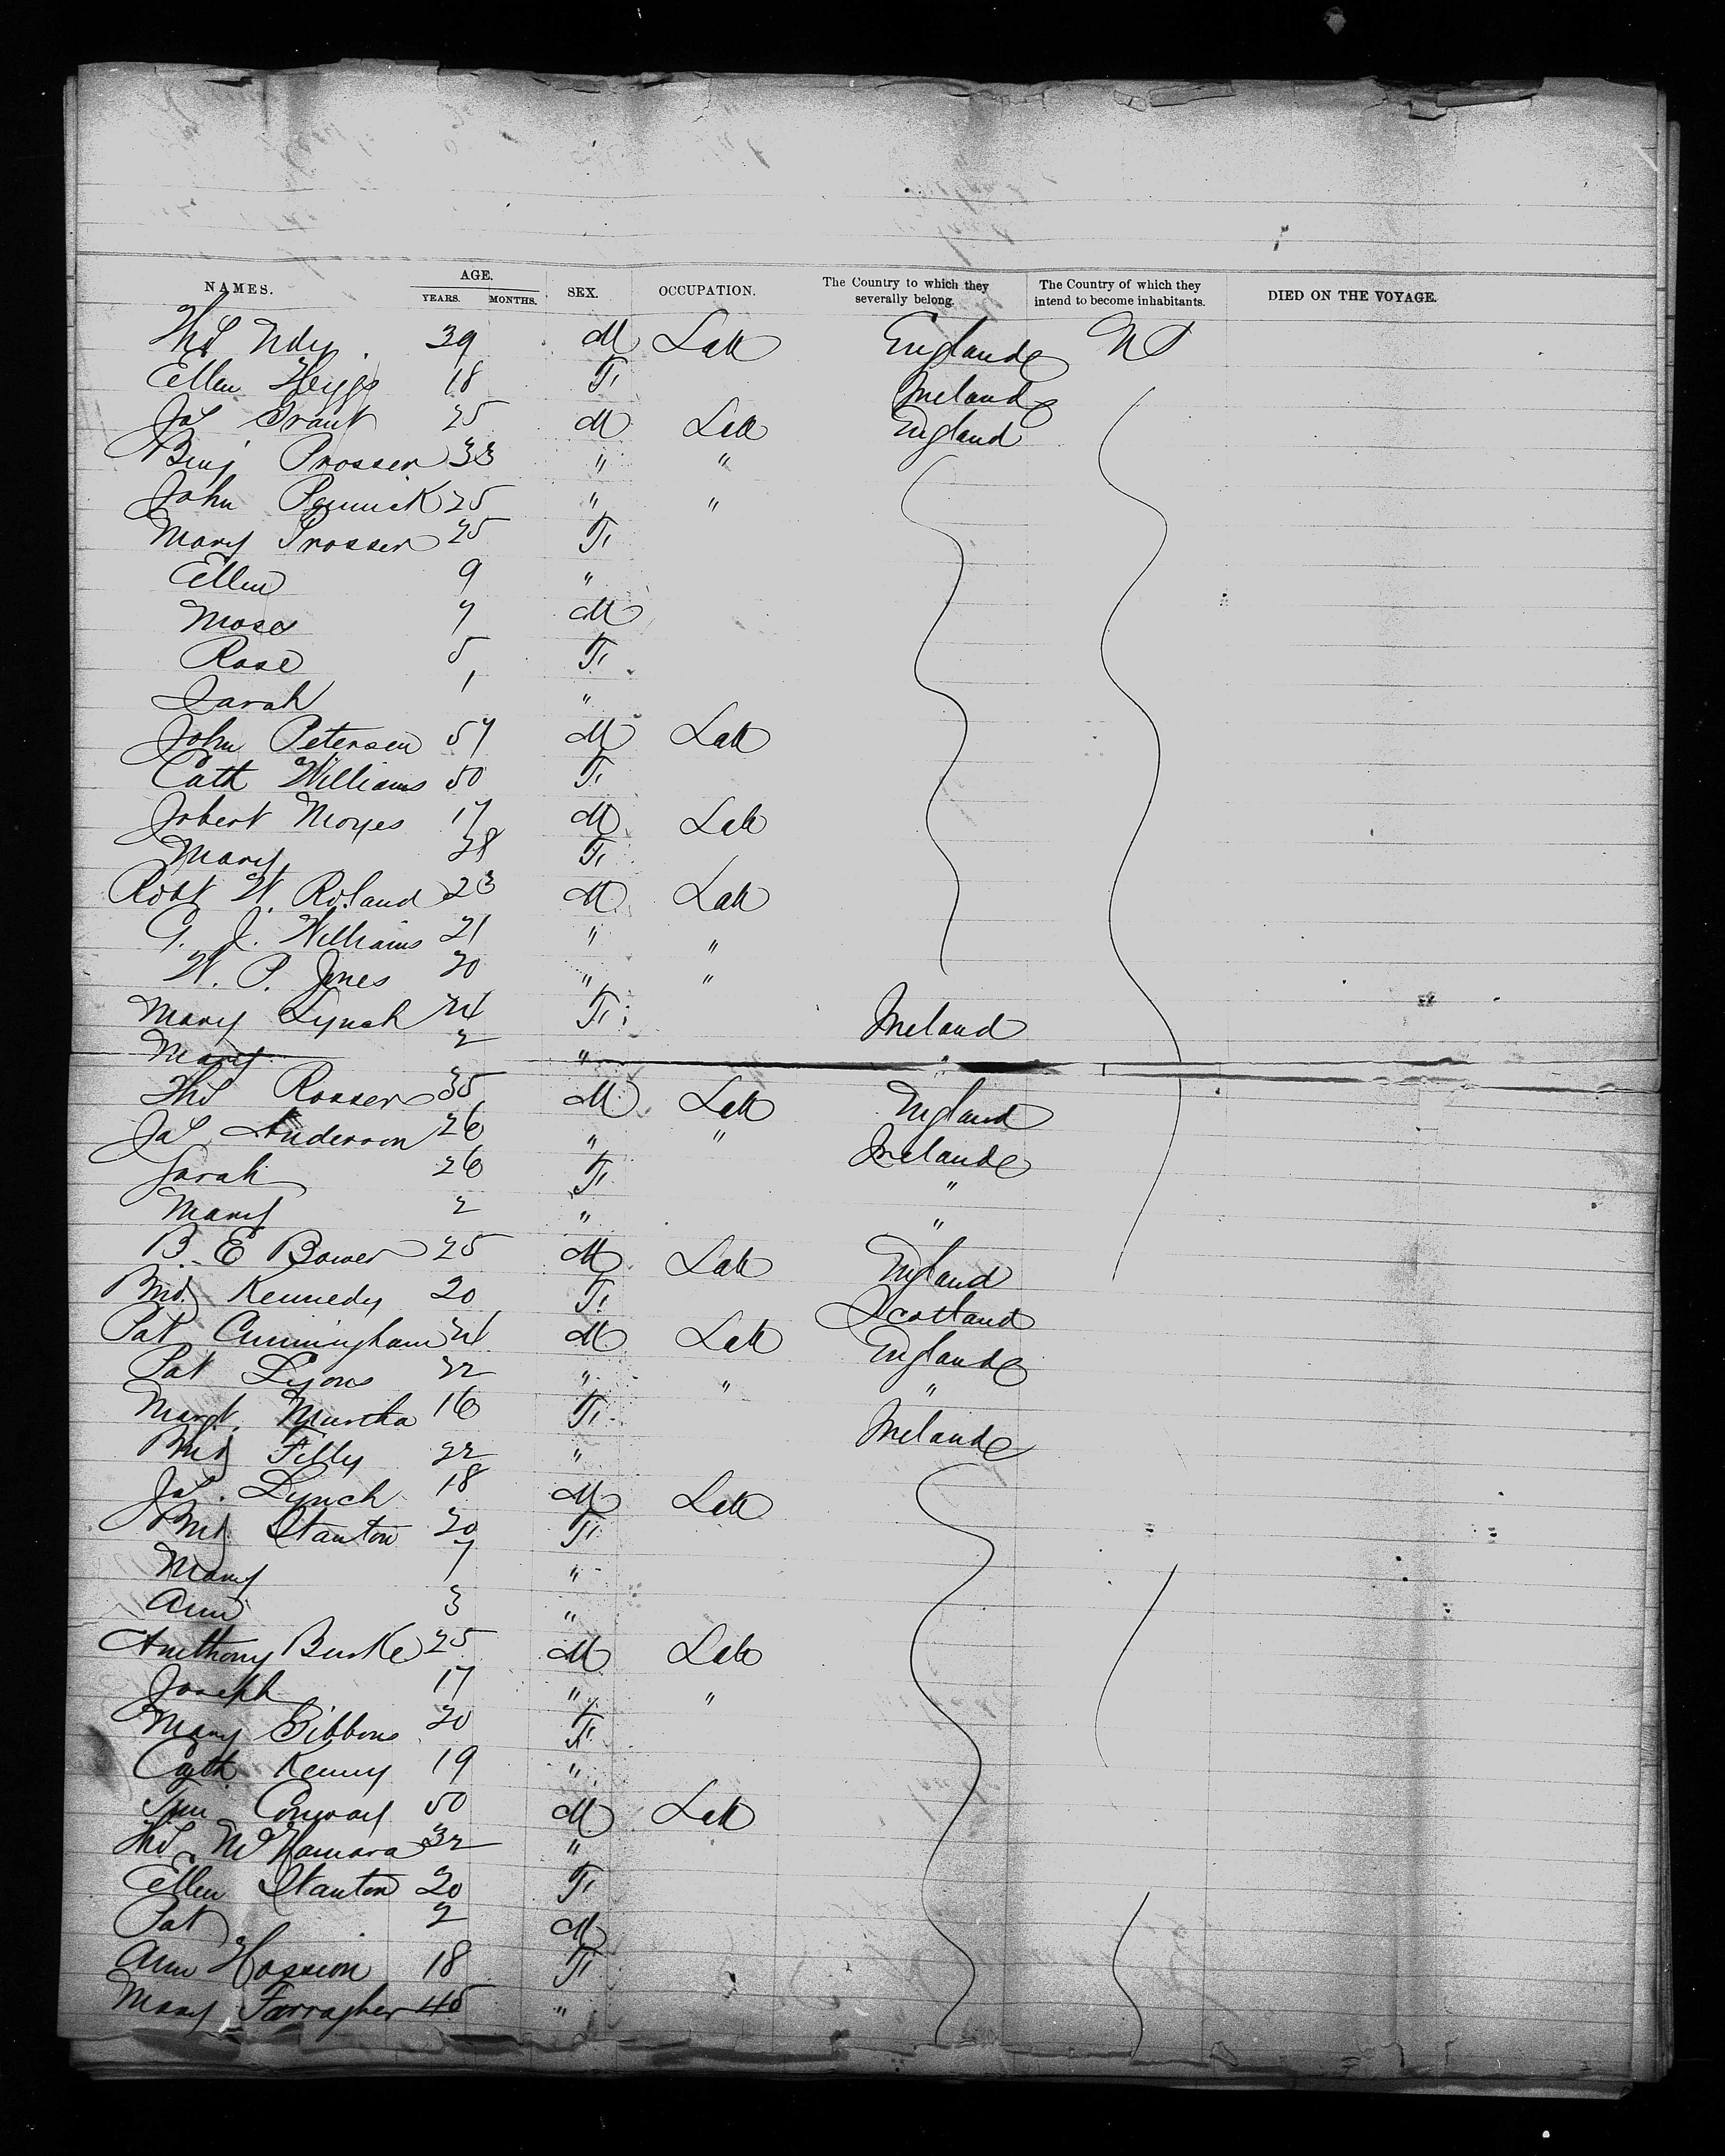 NAMES. AGE. YEARS. MONTHS. SEX. OCCUPATION. The Country to which they severally belong. The Country of which they intend to become inhabitants. DIED ON THE VOYAGE.
Thos 39 M Lab England US
Ellen Heggs 18 F Ireland
Jas Grant 25 M Lab England
Benj Prosser 33 " "
John 25 " "
Mary Prosser 25 F
Ellen 9 "
Moses 7 M
Rose 5 F
Sarah 1 "
John Petersen 57 M Lab
Cath Williams 50 F
Robert Moyes 17 M Lab
Mary 28 F
Robt W. Roland 23 M Lab
G. J. Williams 21 " "
W. P. Jones 20 " "
Mary Lynch 24 F Ireland
Mary 2 " "
Thos Rosser 35 M Lab England
Jas Anderson 26 " " Ireland
Sarah 26 F "
Mary 2 " "
B. E Bower 25 M Lab England
Brid Kennedy 20 F Scotland
Pat Cunningham 24 M Lab England
Pat Lyons 22 " " "
Margt. Murtha 16 F Ireland
Brid Tilly 22 "
Jas. Lynch 18 M Lab
Brid Stanton 30 F
Mary 7 "
Ann 3 "
Anthony Burke 25 M Lab
Joseph 17 " "
Mary Gibbons 20 F
Cath Kenny 19 "
Tim Conway 50 M Lab
Thos McNamara 32 "
Ellen Stanton 20 F
Pat 2 M
Ann Hossion 18 F
Mary Farragher 45 "